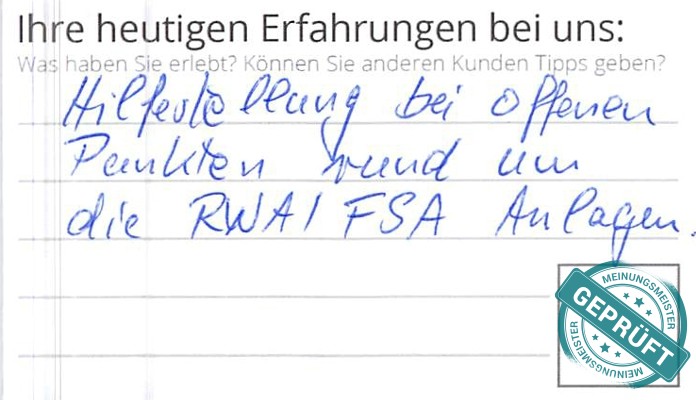 Ihre heutigen Erfahrungen bei uns:
Was haben Sie erlebt? Können Sie anderen Kunden Tipps geben?
Hilfestellung bei offenen
Punkten rund um
die RWA/FSA Anlagen.
MEINUNGSMEISTER
GEPRÜFT
MEINUNGSMEISTER